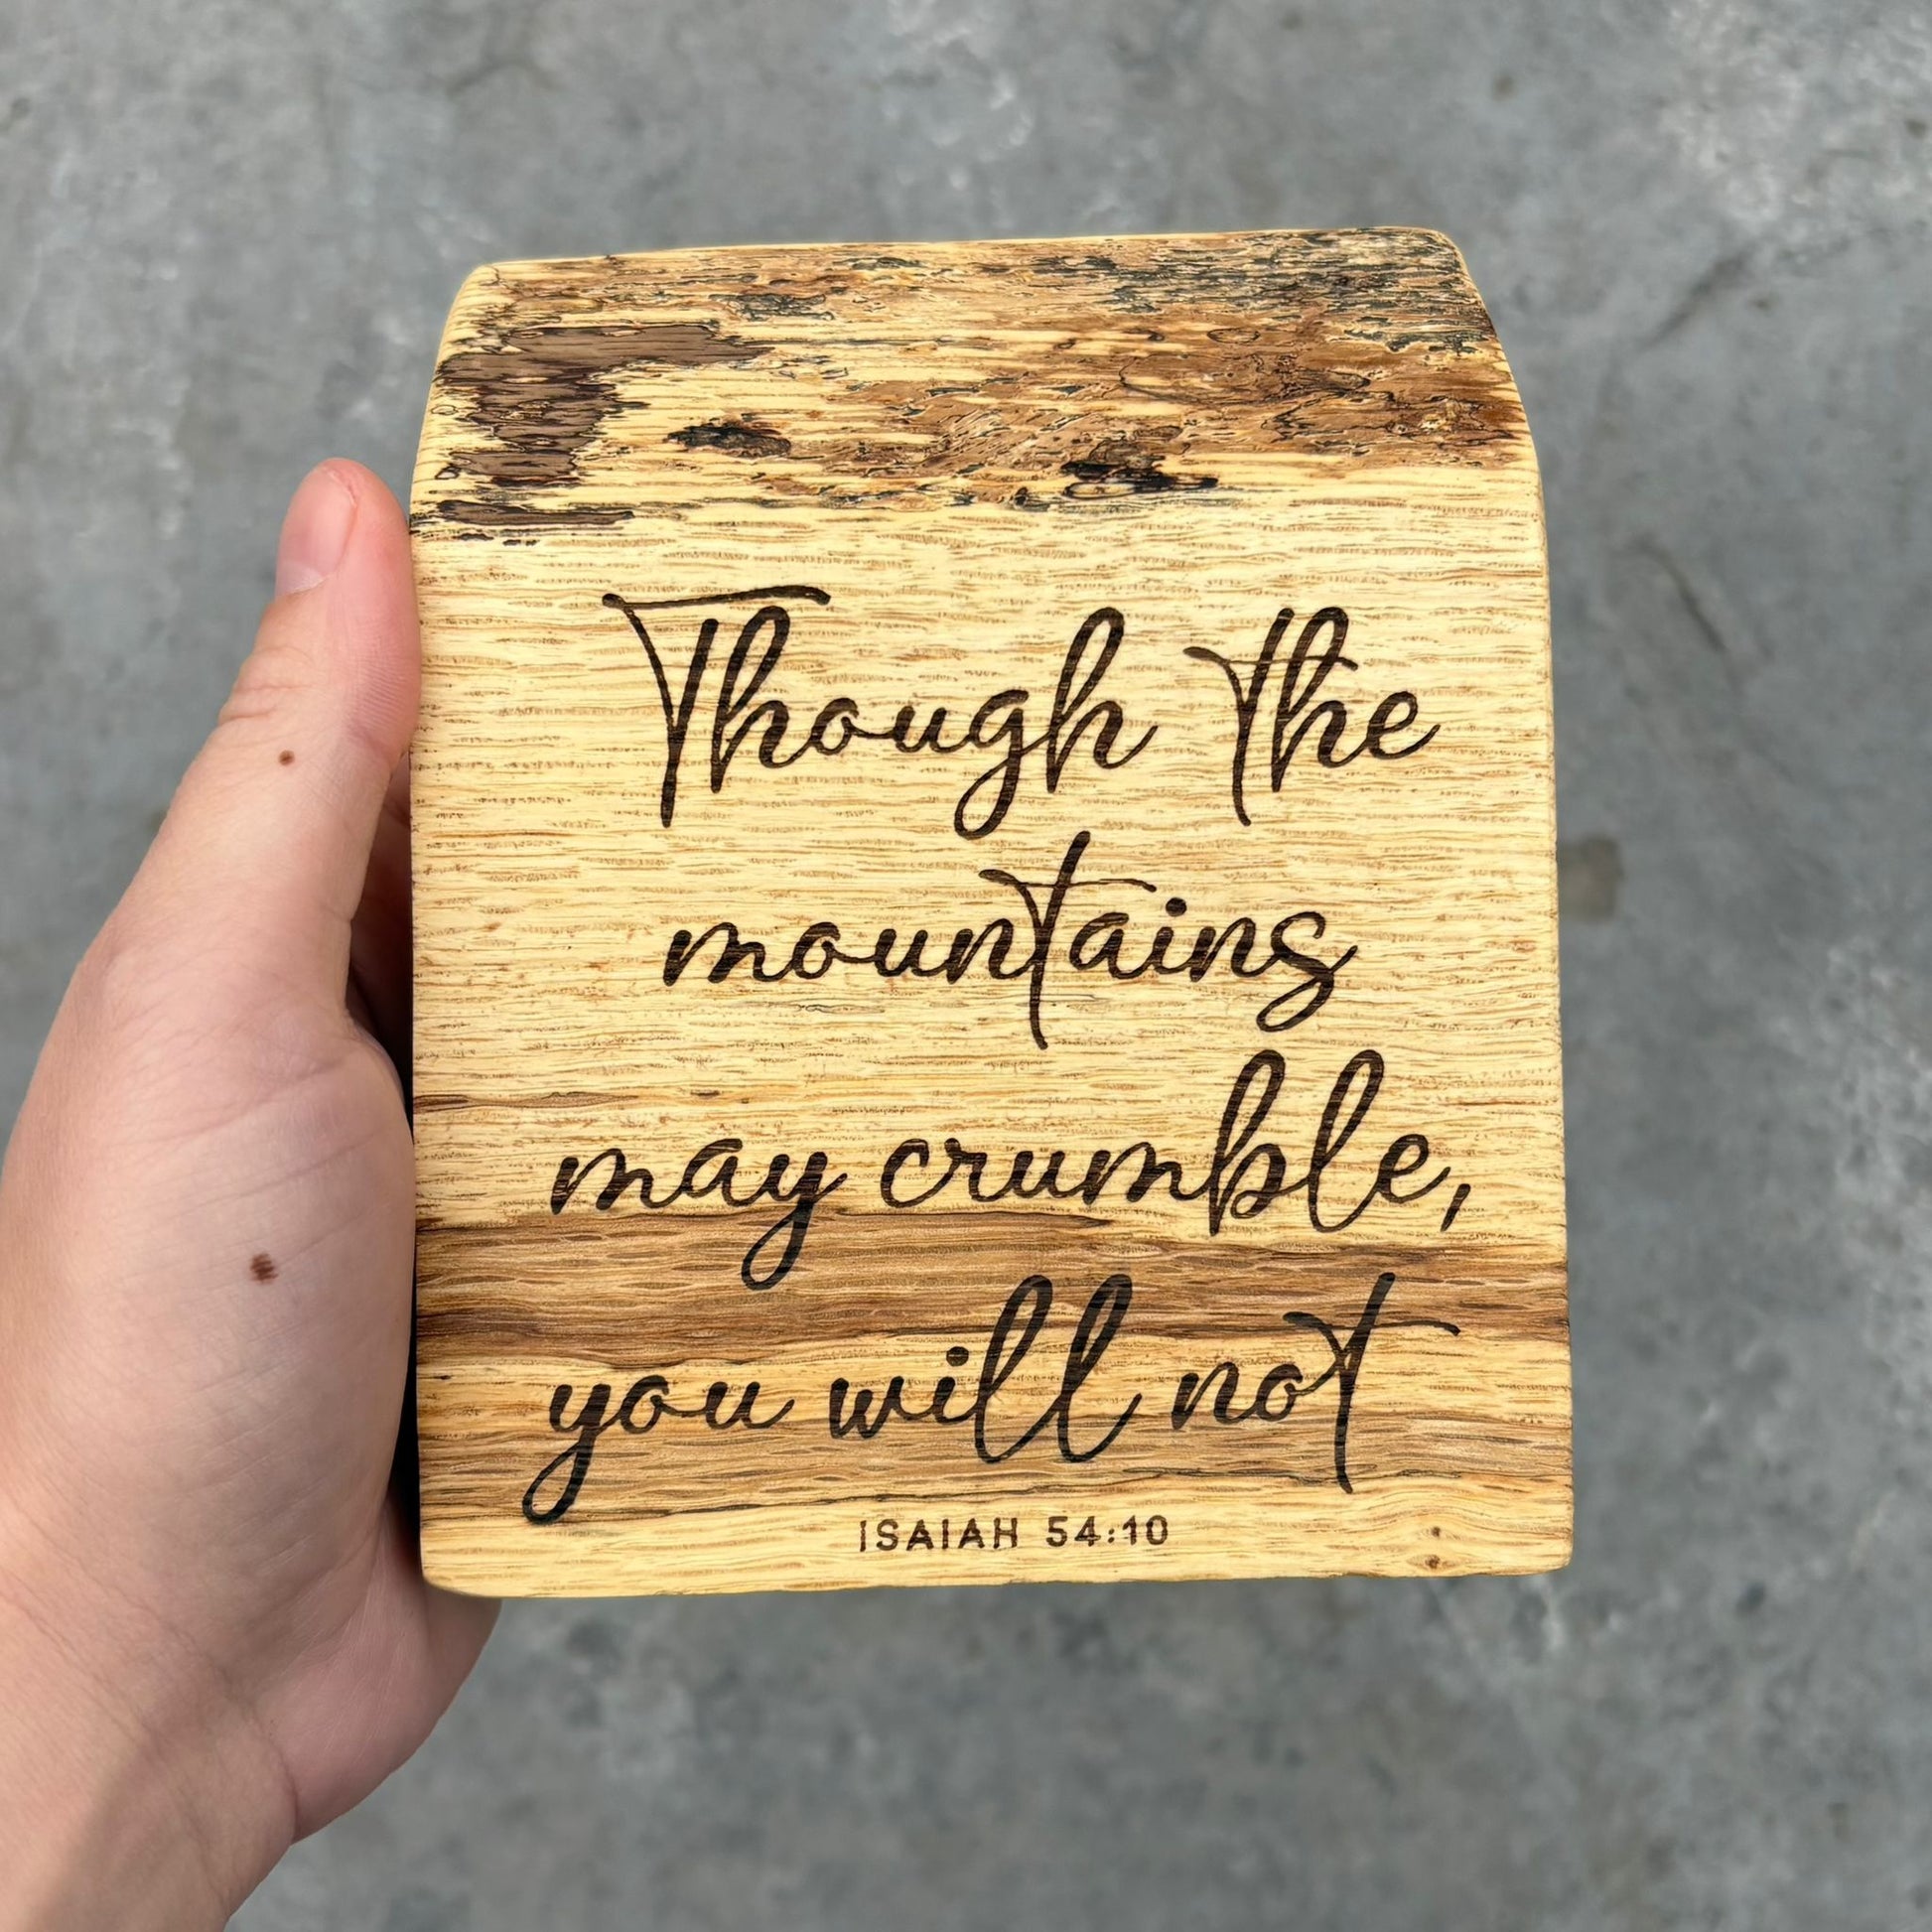 Though the
mountains
may crumble,
you will not
ISAIAH 54:10